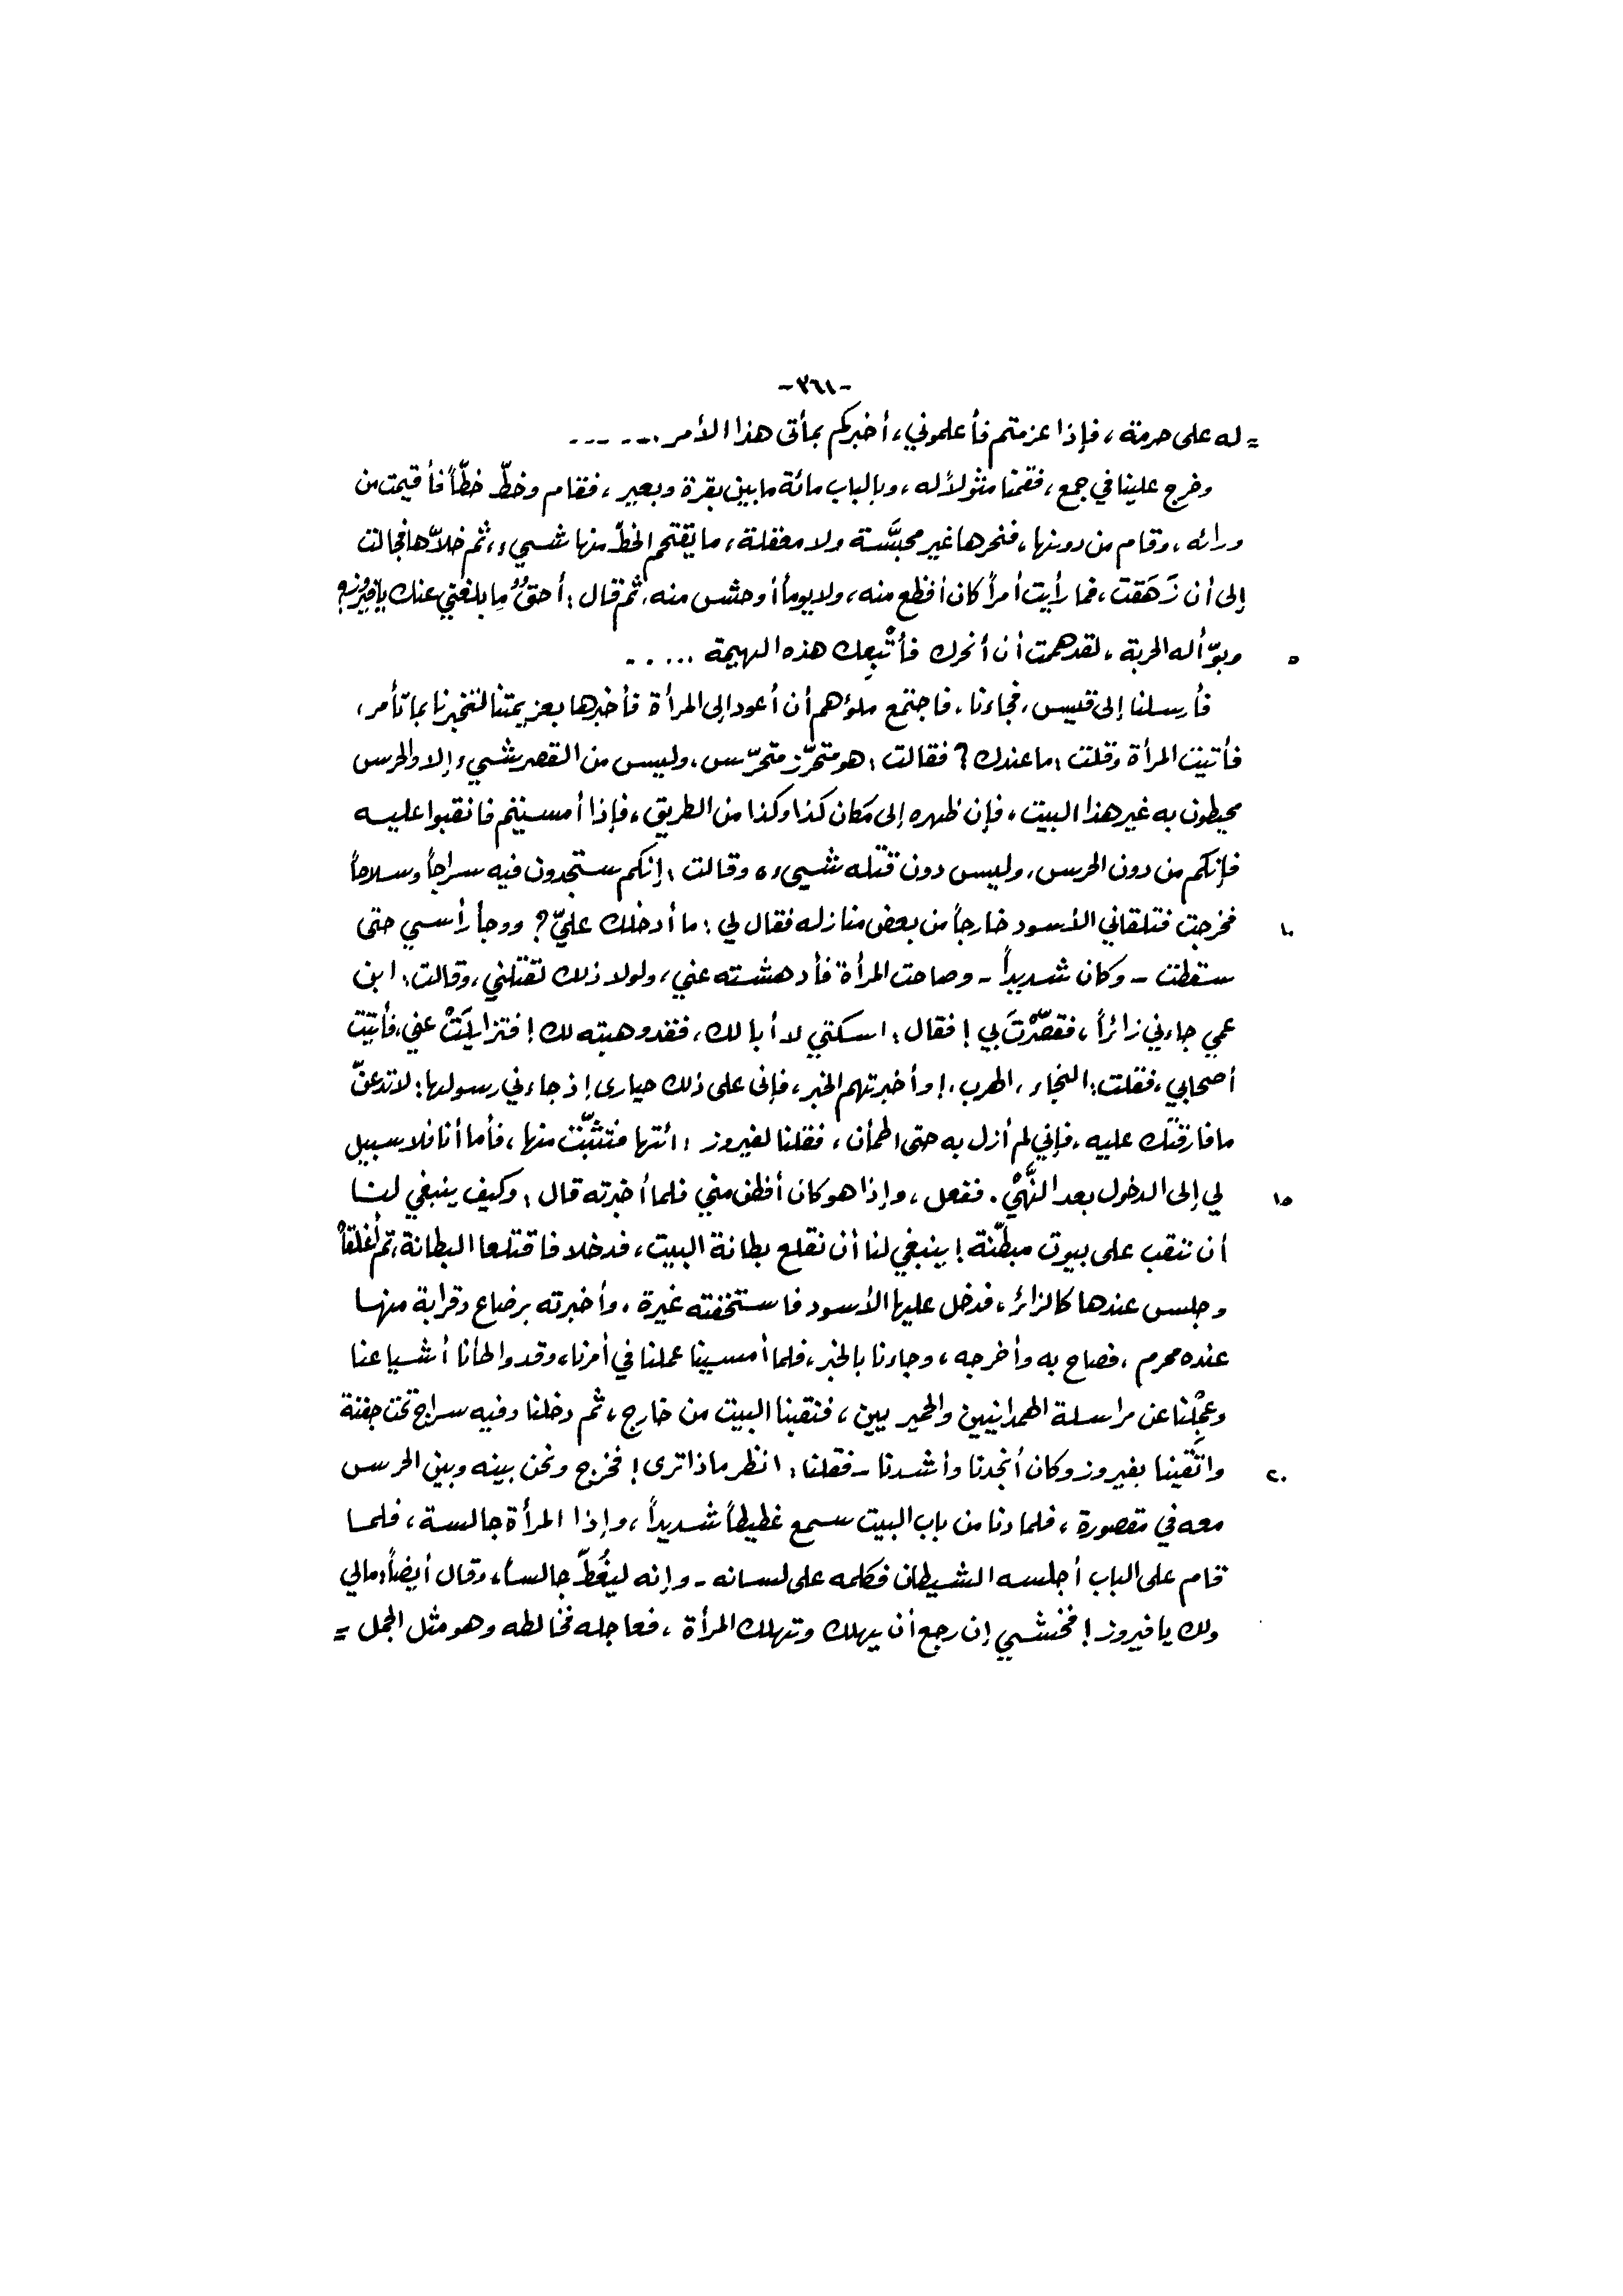 -٣٦١-
= له على حرمة ، فإذا عزمتم فأعلموني ، أخبركم بمأتى هذا الأمر . - - - - -
وخرج علينا في جمع ، فقمنا مثولاً له ، وبالباب مائة ما بين بقرة وبعير ، فقام وخطّ خطّاً فأقيمت من
ورائه ، وقام من دونها ، فنحرها غير محبَّسة ولا معقلة ، ما يقتحم الخطّ منها شيء ، ثم خلاّها فجالت
إلى أن زَهَقت ، فما رأيت أمراً كان أفظع منه ، ولا يوماً أوحش منه . ثم قال : أحقٌ ما بلغني عنك يا فيروز ؟
٥ وبوّأ له الحربة ، لقد هممت أن أنحرك فأتْبِعك هذه البهيمة . . . . .
فأرسلنا إلى قيس ، فجاءنا ، فاجتمع ملؤهم أن أعود إلى المرأة فأخبرها بعزيمتنا لتخبرنا بما تأمر ،
فأتيت المرأة وقلت : ما عندك ؟ فقالت : هو متحرّز متحرّس ، وليس من القصر شيء إلا والحرس
محيطون به غير هذا البيت ، فإن ظهره إلى مكان كذا وكذا من الطريق ، فإذا أمسيتم فانقبوا عليه
فإنكم من دون الحرس ، وليس دون قتله شيء ، وقالت : إنكم ستجدون فيه سراجاً وسلاحاً
١٠ فخرجت فتلقاني الأسود خارجاً من بعض منازله فقال لي : ما أدخلك عليّ ؟ ووجأ رأسي حتى
سقطت - وكان شديداً - وصاحت المرأة فأدهشته عني ، ولولا ذلك لقتلني ، وقالت : ابن
عمي جاءني زائراً ، فقصّرْتَ بي ! فقال : اسكتي لا أبا لك ، فقد وهبته لك ! فتزايلَتْ عني ، فأتيت
أصحابي ، فقلت : النجاء ، الهرب ، ! وأخبرتهم الخبر ، فإنى على ذلك حيارى إذ جاءني رسولها : لا تدعنّ
ما فارقتك عليه ، فإني لم أزل به حتى اطمأن ، فقلنا لفيروز : ائتها فتثبّت منها ، فأما أنا فلا سبيل
١٥ لي إلى الدخول بعد النَّهْيِ . ففعل ، وإذا هو كان أفطن مني فلما أخبرته قال : وكيف ينبغي لنا
أن ننقب على بيوت مبطّنة ! ينبغي لنا أن نقلع بطانة البيت ، فدخلا فاقتلعا البطانة ، ثم أغلقاْ
وجلس عندها كالزائر ، فدخل عليها الأسود فاستخفته غيرة ، وأخبرته برضاع وقرابة منها
عنده محرم ، فصاح به وأخرجه ، وجاءنا بالخبر ، فلما أمسينا عملنا في أمرنا ، وقد واطأنا أشياعنا
وعجِلْنا عن مراسلة الهمدانيين والحميريين ، فنقبنا البيت من خارج ، ثم دخلنا وفيه سراج تحت جفنة
٢٠ واتّقينا بفيروز وكان أنجدنا وأشدنا - فقلنا : انظر ماذا ترى ! فخرج ونحن بينه وبين الحرس
معه في مقصورة ، فلما دنا من باب البيت سمع غطيطاً شديداً ، وإذا المرأة جالسة ، فلما
قام على الباب أجلسه الشيطان فكلمه على لسانه - وإنه ليغُطّ جالساً ، وقال أيضاً : مالي
ولك يا فيروز ! فخشي إن رجع أن يهلك وتهلك المرأة ، فعاجله فخالطه وهو مثل الجمل =